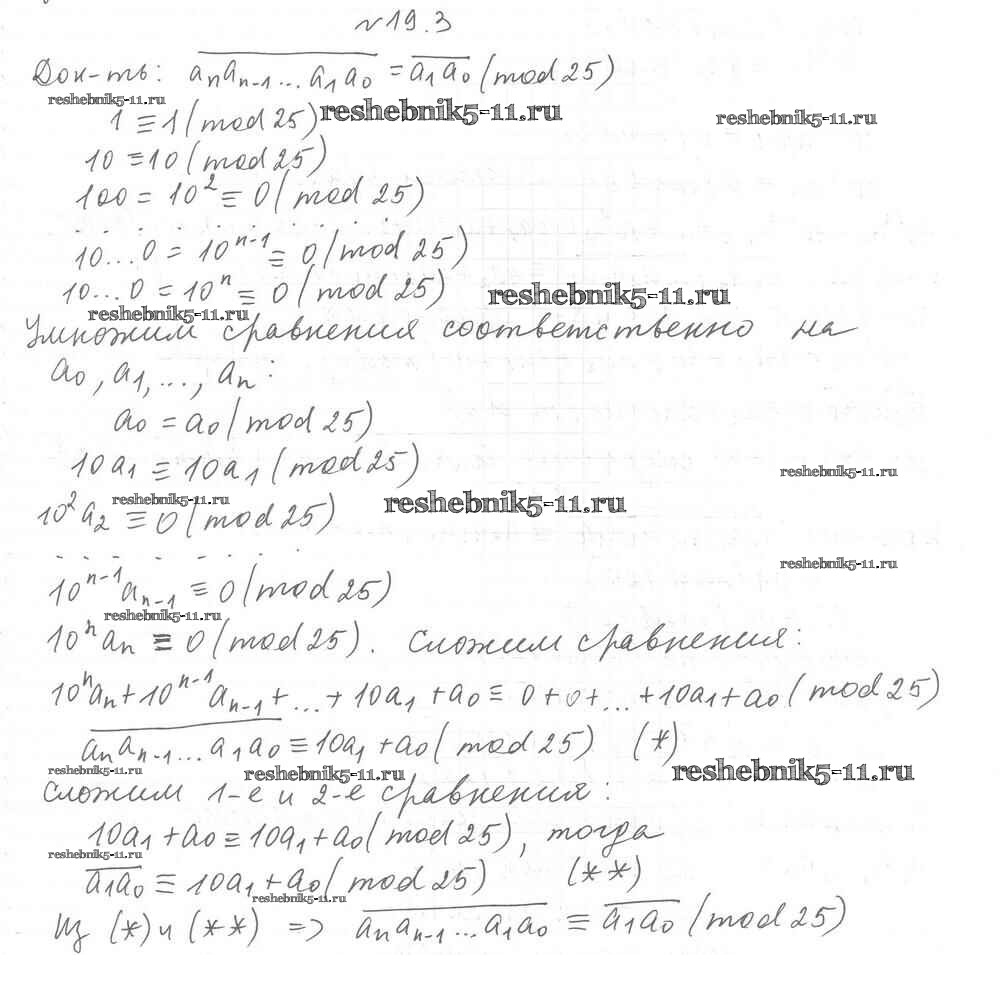 № 19.3
Док-ть: a̅ₙa̅ₙ₋₁...a̅₁a̅₀ = a̅₁a̅₀ (mod 25)
reshebnik5-11.ru
1 ≡ 1 (mod 25)
reshebnik5-11.ru
reshebnik5-11.ru
10 ≡ 10 (mod 25)
100 = 10² ≡ 0 (mod 25)
. . . . . . . . .
10...0 = 10ⁿ⁻¹ ≡ 0 (mod 25)
10...0 = 10ⁿ ≡ 0 (mod 25)
reshebnik5-11.ru
reshebnik5-11.ru
Умножим сравнения соответственно на
a₀, a₁, ..., aₙ:
a₀ = a₀ (mod 25)
10a₁ ≡ 10a₁ (mod 25)
reshebnik5-11.ru
reshebnik5-11.ru
reshebnik5-11.ru
10²a₂ ≡ 0 (mod 25)
. . . . . . . . .
reshebnik5-11.ru
10ⁿ⁻¹aₙ₋₁ ≡ 0 (mod 25)
reshebnik5-11.ru
10ⁿaₙ ≡ 0 (mod 25). Сложим сравнения:
10ⁿaₙ + 10ⁿ⁻¹aₙ₋₁ + ... + 10a₁ + a₀ ≡ 0 + 0 + ... + 10a₁ + a₀ (mod 25)
a̅ₙa̅ₙ₋₁...a̅₁a̅₀ ≡ 10a₁ + a₀ (mod 25) (*)
reshebnik5-11.ru
reshebnik5-11.ru
reshebnik5-11.ru
Сложим 1-е и 2-е сравнения:
10a₁ + a₀ ≡ 10a₁ + a₀ (mod 25), тогда
reshebnik5-11.ru
a̅₁a̅₀ ≡ 10a₁ + a₀ (mod 25) (**)
reshebnik5-11.ru
Из (*) и (**) => a̅ₙa̅ₙ₋₁...a̅₁a̅₀ ≡ a̅₁a̅₀ (mod 25)